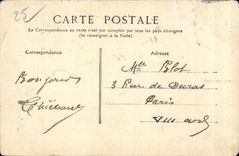 25
CARTE POSTALE
La Correspondance au recto n'est pas acceptée par tous les pays étrangers
(Se renseigner à la Poste)
Correspondance
Adresse
Bonjour
Thiébaut
Mlle Blot
3 Rue de Duras
Paris